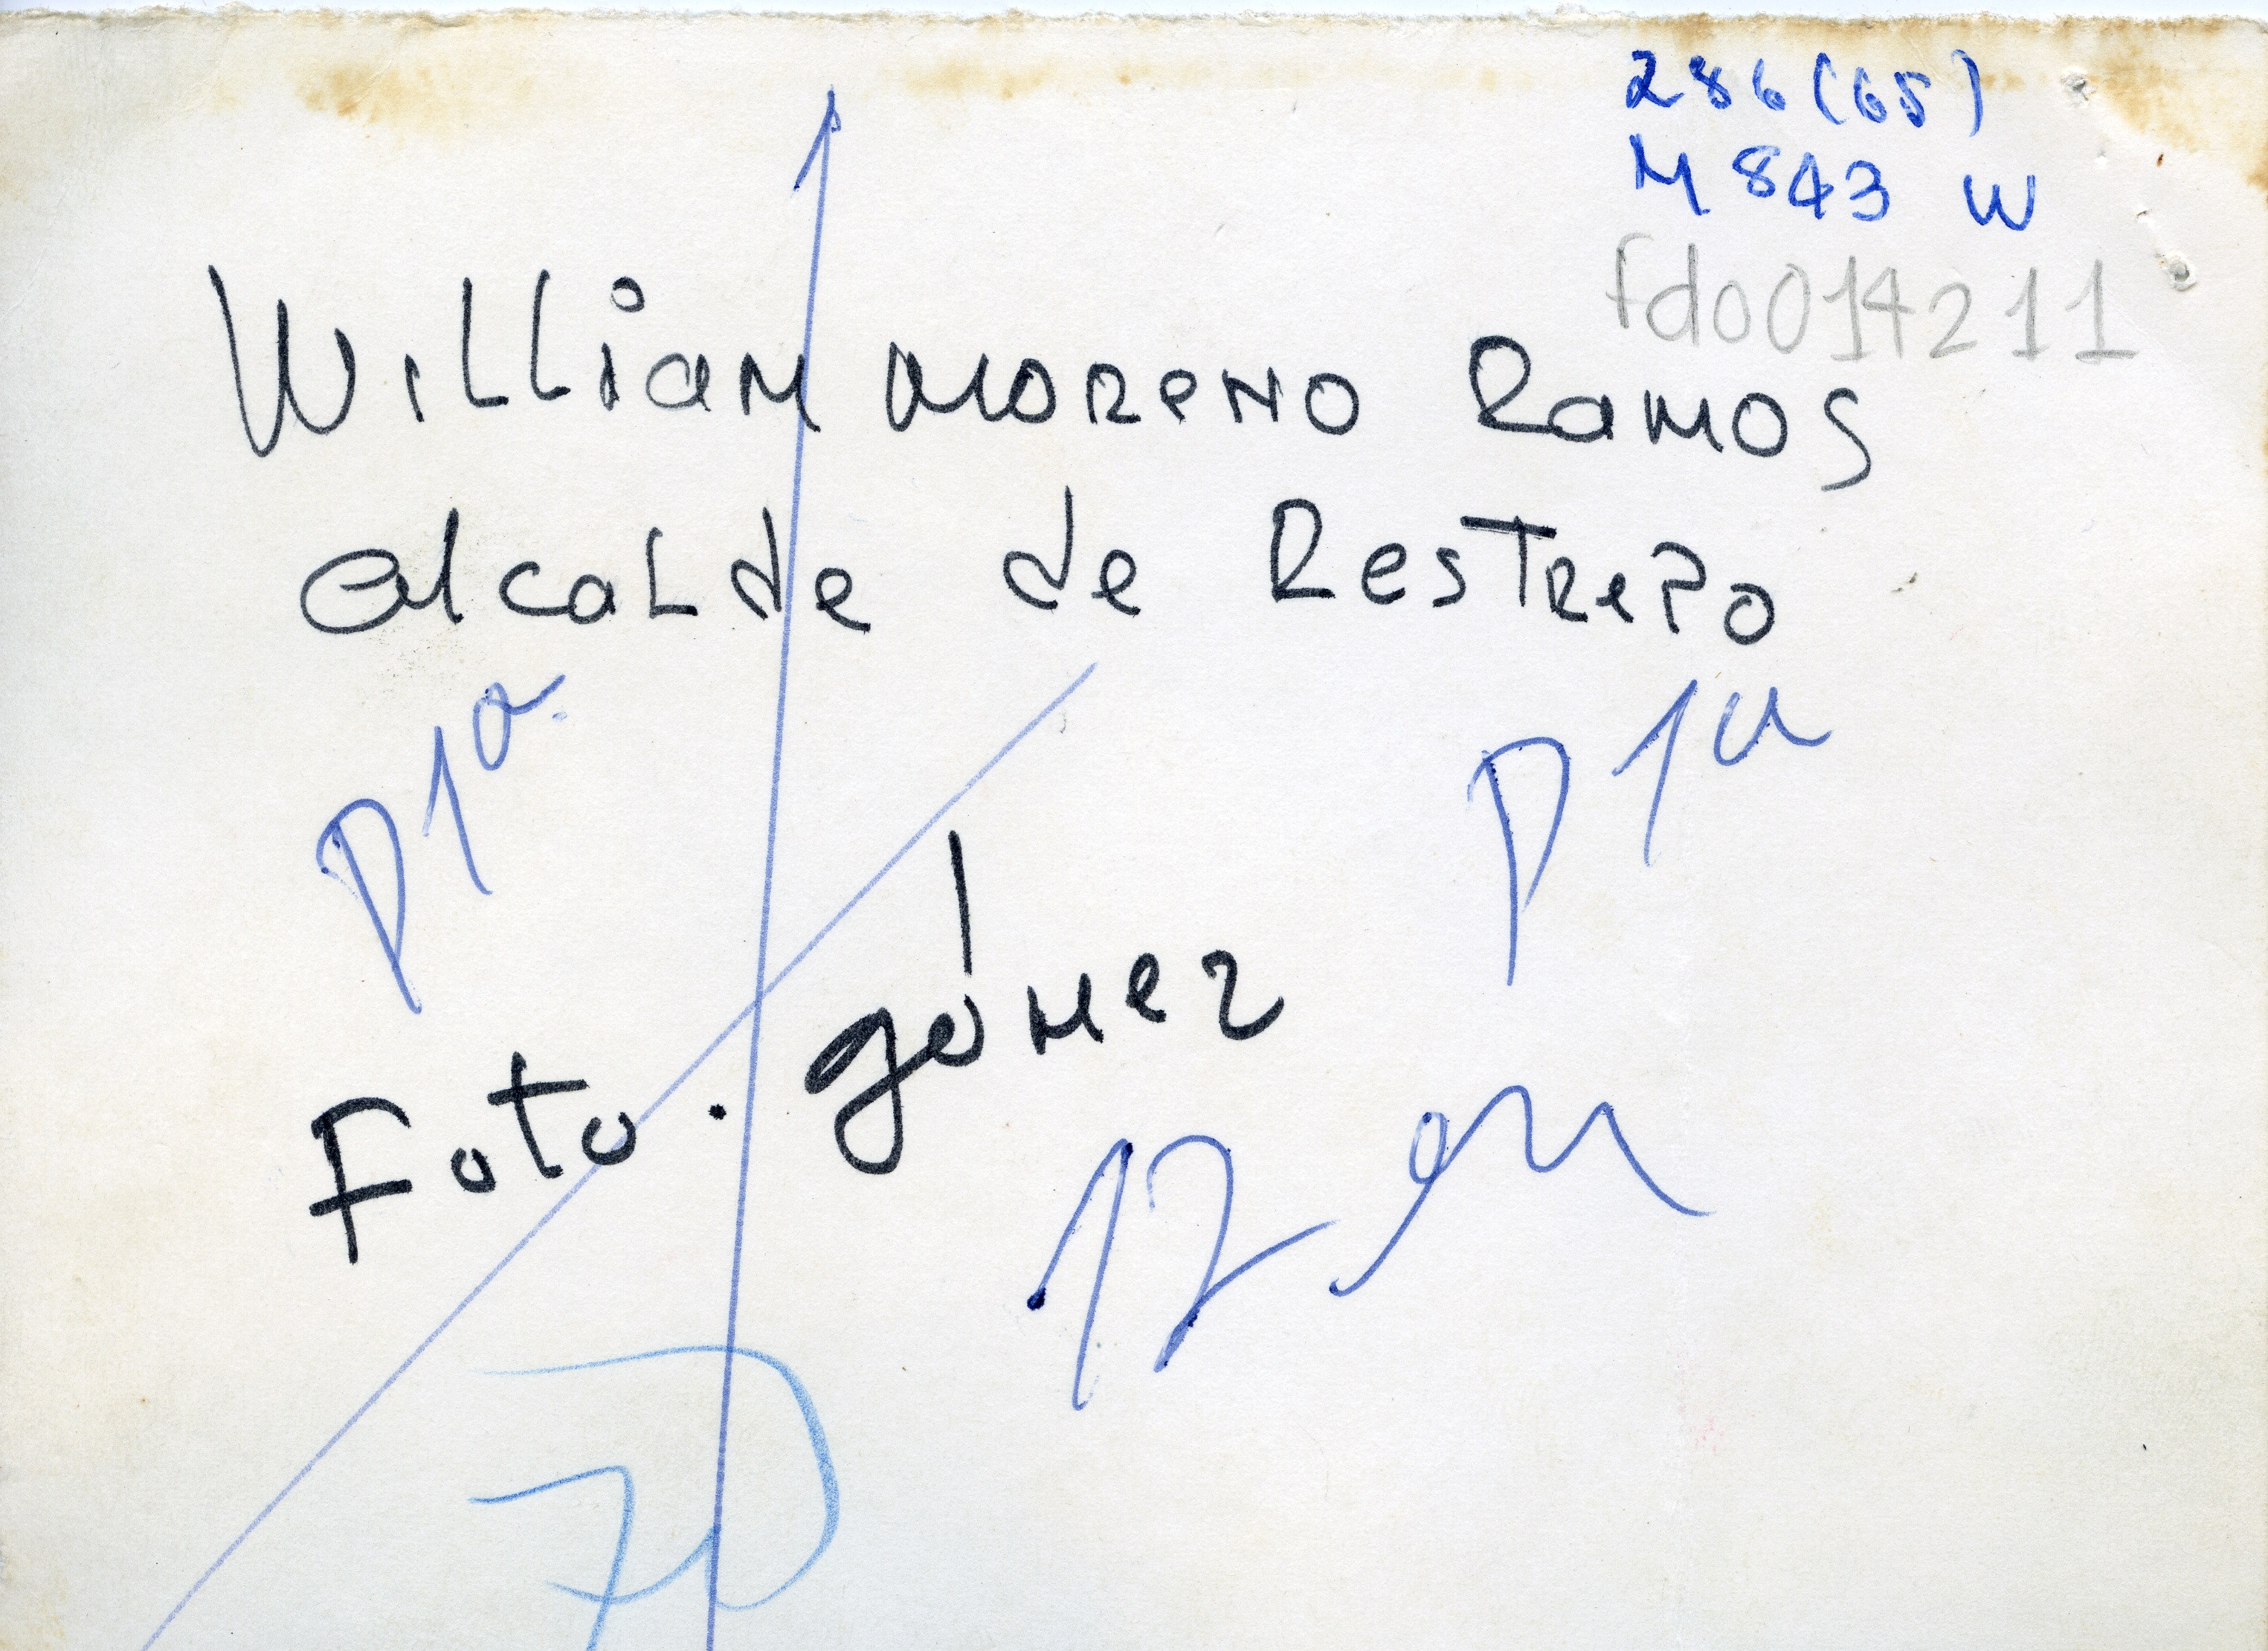 286(65)
M843 W
fdo014211
William Moreno Ramos
alcalde de Restrepo
P1a
P1a
Foto. gómez
12